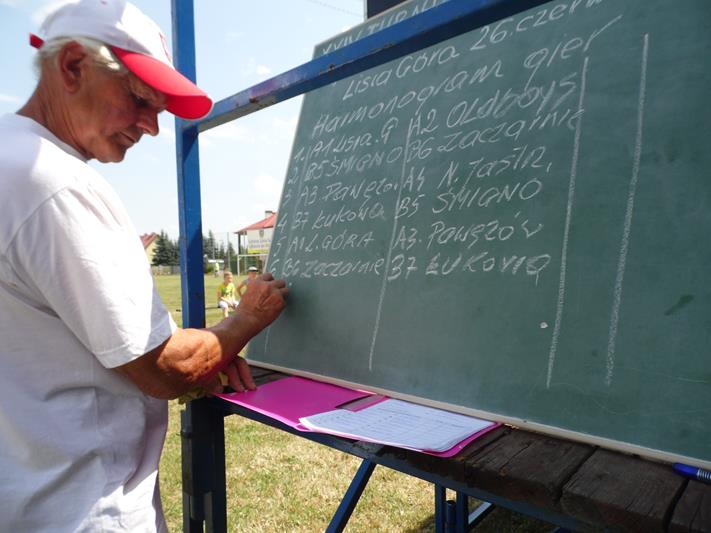 XXIV TURNIEJ
Lisia Góra 26.czerw
Harmonogram gier
1. A1 Lisia.G A2 OLDBOYS
2 B5 ŚMIGNO B6 Zaczarnie
3 A3. Pawęzów A4 N. Jastrz.
4 B7 Łukowa B5 ŚMIGNO
5 A1 L. GÓRA A3. Pawęzów
6 B6 Zaczarnie B7 ŁUKOWA